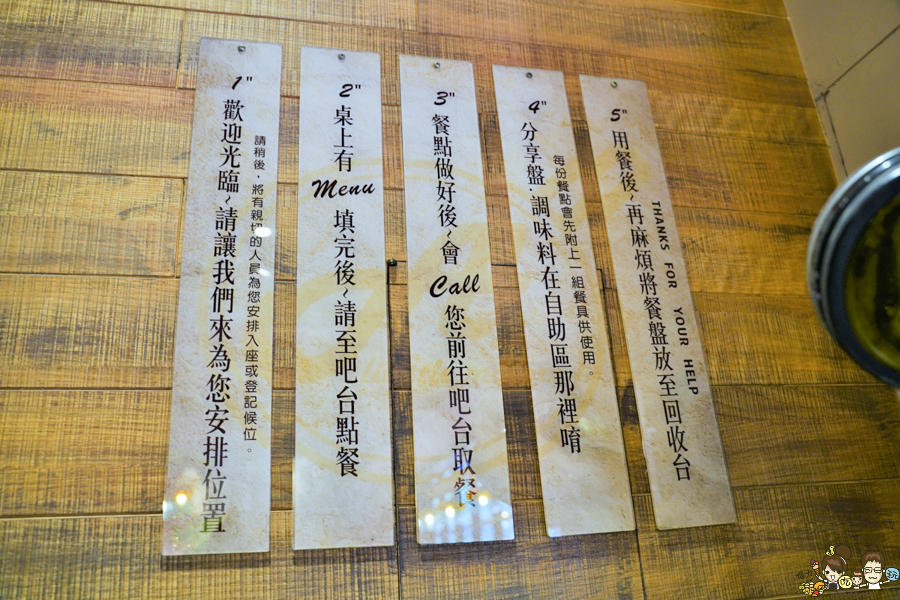 1" 歡迎光臨~請讓我們來為您安排位置
請稍後，將有親切的人員為您安排入座或登記候位。
2" 桌上有 Menu 填完後~請至吧台點餐
3" 餐點做好後~會 Call 您前往吧台取餐
4" 分享盤．調味料在自助區那裡唷
每份餐點會先附上一組餐具供使用。
5" 用餐後~再麻煩將餐盤放至回收台
THANKS FOR YOUR HELP